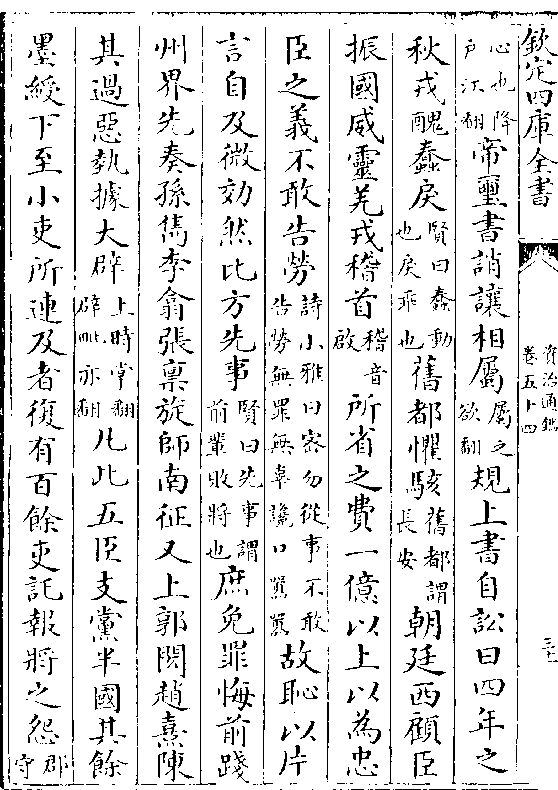 欽定四庫全書
資治通鑑
卷五十四
心也降戶江翻帝璽書誚讓相屬屬之欲翻規上書自訟曰四年之
秋戎醜蠢戾賢曰蠢動也戾乖也舊都懼駭舊都謂長安朝廷西顧臣
振國威靈羌戎稽首稽音啟所省之費一億以上以為忠
臣之義不敢告勞詩小雅曰密勿從事不敢告勞無罪無辜讒口嗸嗸故恥以片
言自及微効然比方先事賢曰先事謂前輩敗將也庶免罪悔前踐
州界先奏孫雋李翕張稟旋師南征又上郭閎趙熹陳
其過惡執據大辟上時掌翻辟毗亦翻凡此五臣支黨半國其餘
墨綬下至小吏所連及者復有百餘吏託報將之怨郡守